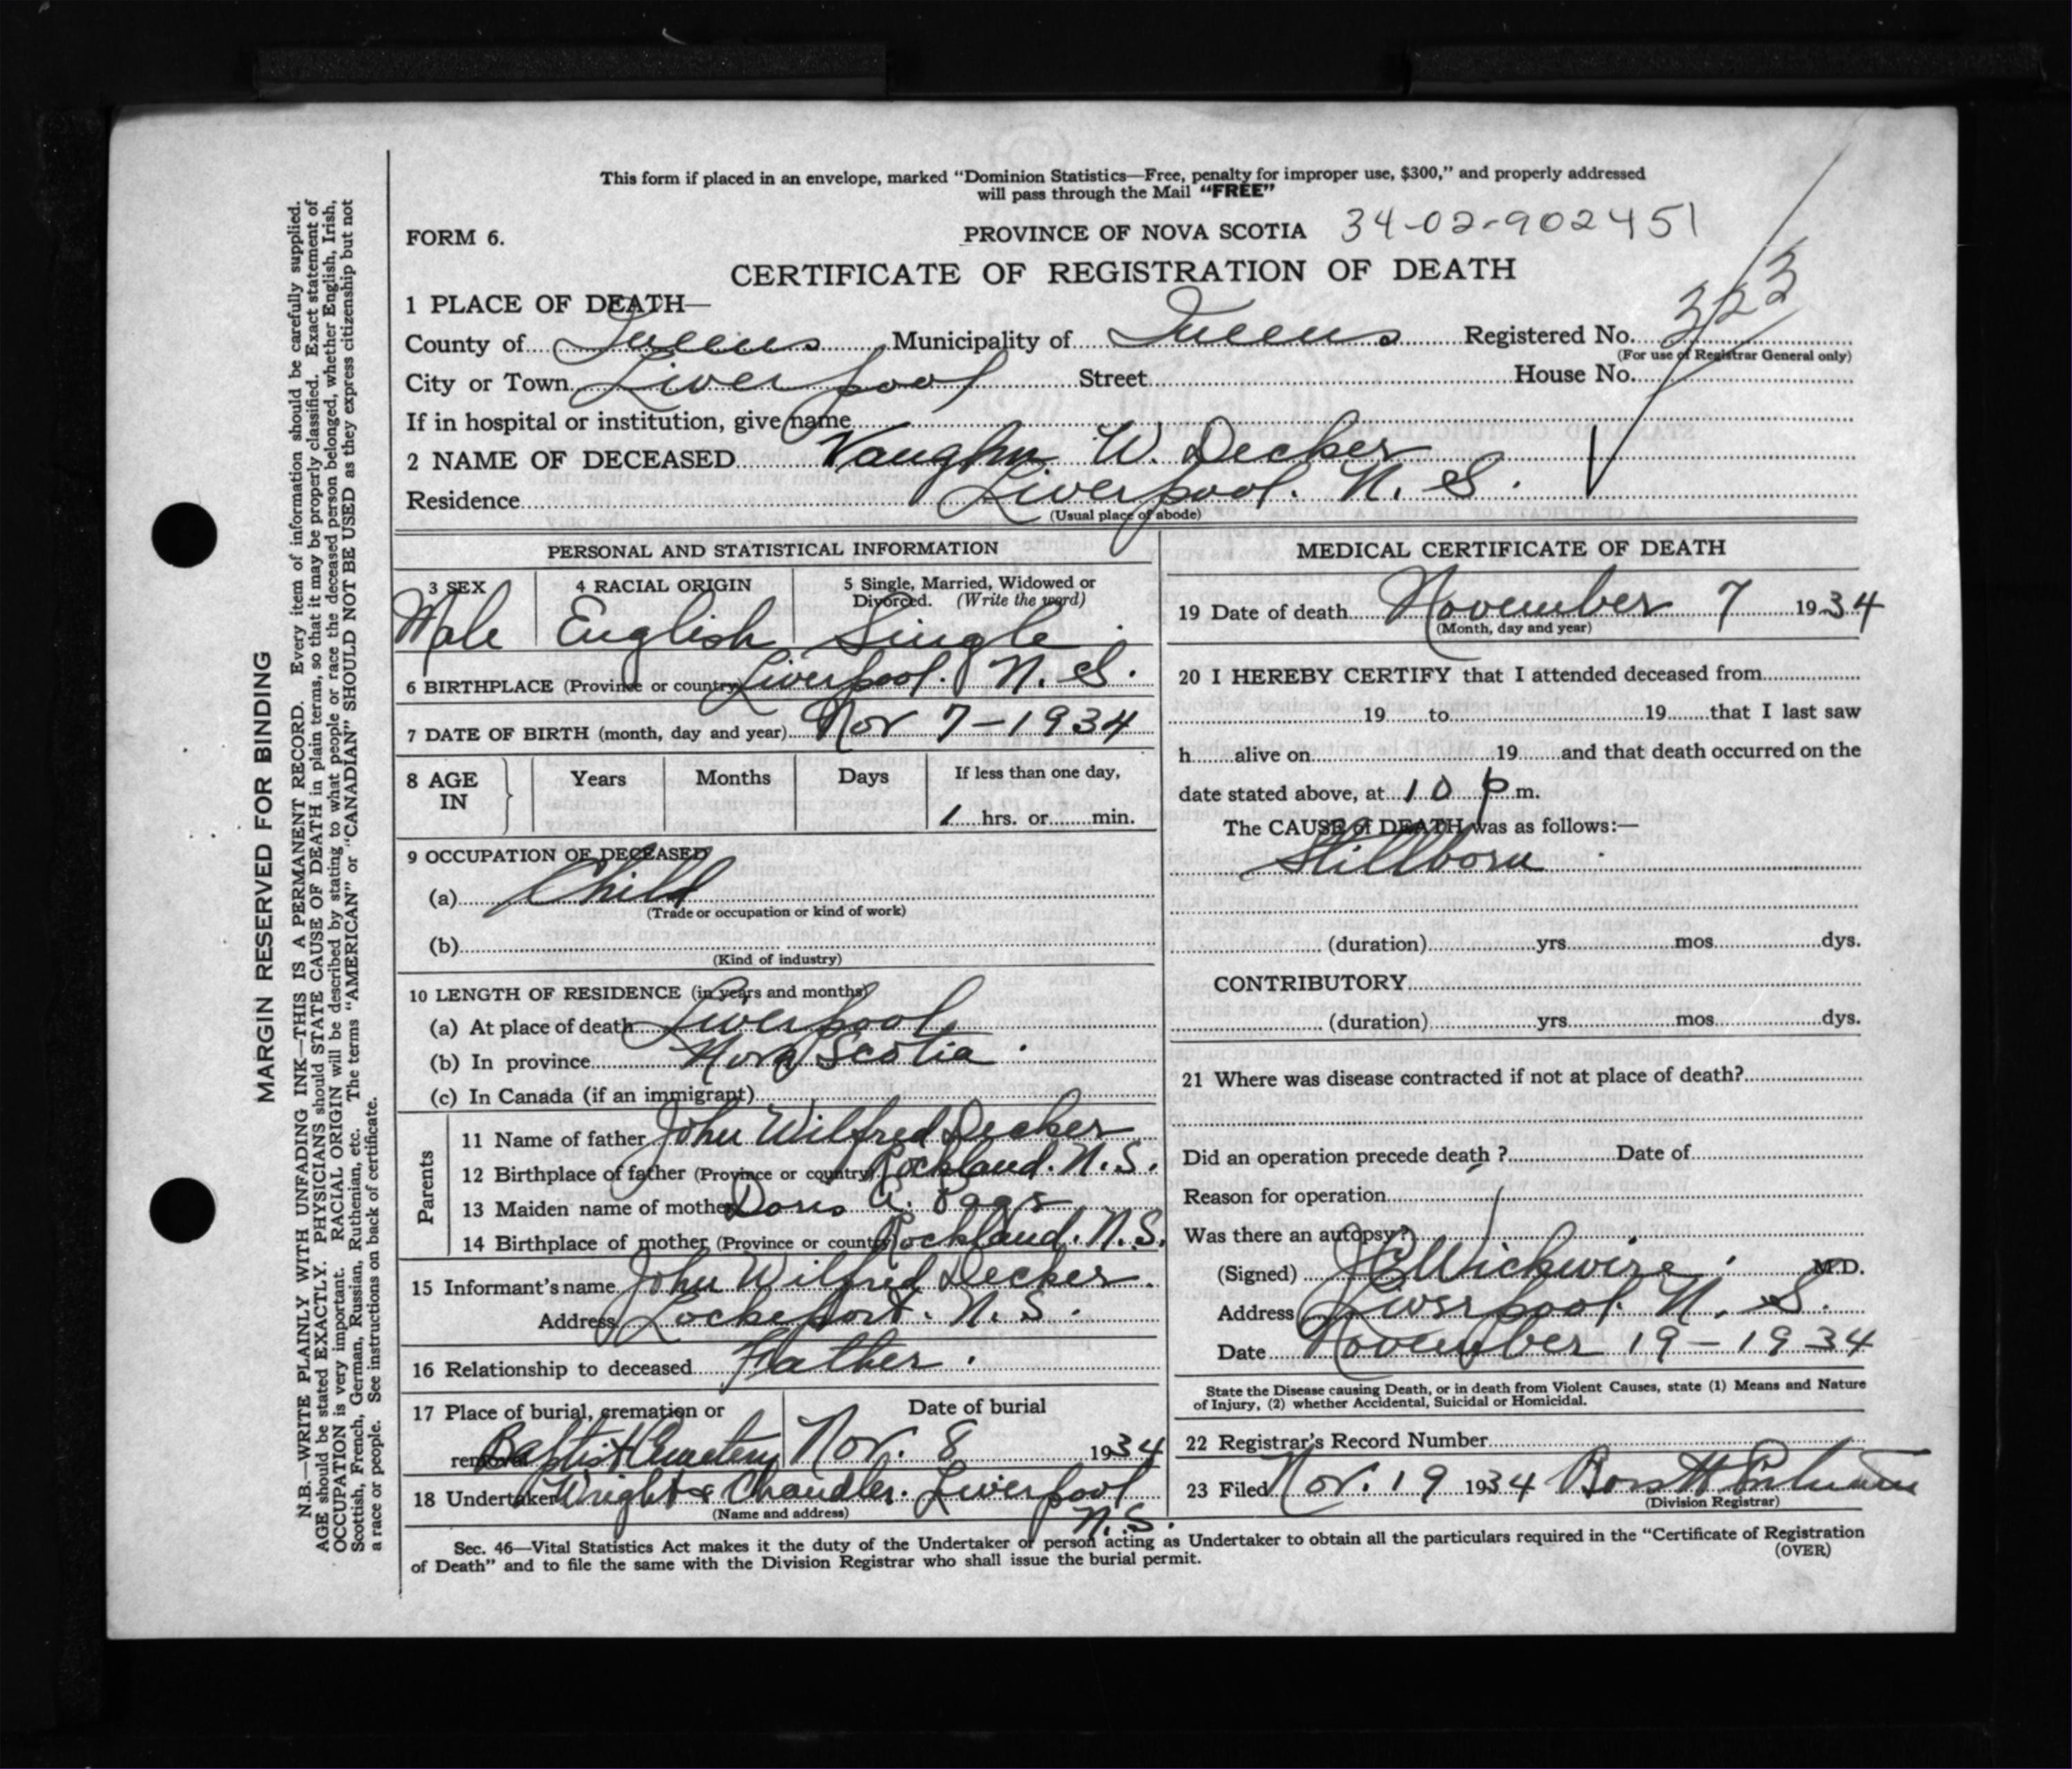 This form if placed in an envelope, marked “Dominion Statistics—Free, penalty for improper use, $300,” and properly addressed
will pass through the Mail “FREE”
FORM 6. PROVINCE OF NOVA SCOTIA 34-02-902451
CERTIFICATE OF REGISTRATION OF DEATH
1 PLACE OF DEATH—
County of Queens Municipality of Queens Registered No. 323
(For use of Registrar General only)
City or Town Liverpool Street House No.
If in hospital or institution, give name
2 NAME OF DECEASED Vaughn W. Decker
Residence Liverpool. N. S.
(Usual place of abode)
PERSONAL AND STATISTICAL INFORMATION
3 SEX 4 RACIAL ORIGIN 5 Single, Married, Widowed or
Divorced. (Write the word)
Male English Single
6 BIRTHPLACE (Province or country) Liverpool. N. S.
7 DATE OF BIRTH (month, day and year) Nov 7-1934
8 AGE IN Years Months Days If less than one day,
1 hrs. or min.
9 OCCUPATION OF DECEASED
(a) Child
(Trade or occupation or kind of work)
(b)
(Kind of industry)
10 LENGTH OF RESIDENCE (in years and months)
(a) At place of death Liverpool
(b) In province Nova Scotia
(c) In Canada (if an immigrant)
Parents
11 Name of father John Wilfred Decker
12 Birthplace of father (Province or country) Rockland. N.S.
13 Maiden name of mother Doris A.
14 Birthplace of mother (Province or country) Rockland. N.S.
15 Informant's name John Wilfred Decker.
Address Lockeport. N. S.
16 Relationship to deceased Father.
17 Place of burial, cremation or Date of burial
removal Baptist Cemetery Nov. 8 1934
18 Undertaker Wright & Chandler. Liverpool
(Name and address) N.S.
MEDICAL CERTIFICATE OF DEATH
19 Date of death November 7 1934
(Month, day and year)
20 I HEREBY CERTIFY that I attended deceased from
19 to 19 that I last saw
h alive on 19 and that death occurred on the
date stated above, at 10 p m.
The CAUSE of DEATH was as follows:—
Stillborn
(duration) yrs. mos. dys.
CONTRIBUTORY
(duration) yrs. mos. dys.
21 Where was disease contracted if not at place of death?
Did an operation precede death? Date of
Reason for operation
Was there an autopsy?
(Signed) J C Wickwire M.D.
Address Liverpool. N. S.
Date November 19-1934
State the Disease causing Death, or in death from Violent Causes, state (1) Means and Nature
of Injury, (2) whether Accidental, Suicidal or Homicidal.
22 Registrar's Record Number
23 Filed Nov. 19 1934
(Division Registrar)
Sec. 46—Vital Statistics Act makes it the duty of the Undertaker or person acting as Undertaker to obtain all the particulars required in the “Certificate of Registration
of Death” and to file the same with the Division Registrar who shall issue the burial permit. (OVER)
MARGIN RESERVED FOR BINDING
N.B.—WRITE PLAINLY WITH UNFADING INK—THIS IS A PERMANENT RECORD. Every item of information should be carefully supplied.
AGE should be stated EXACTLY. PHYSICIANS should STATE CAUSE OF DEATH in plain terms, so that it may be properly classified. Exact statement of
OCCUPATION is very important. RACIAL ORIGIN will be described by stating to what people or race the deceased person belonged, whether English, Irish,
Scottish, French, German, Russian, Ruthenian, etc. The terms “AMERICAN” or “CANADIAN” SHOULD NOT BE USED as they express citizenship but not
a race or people. See instructions on back of certificate.